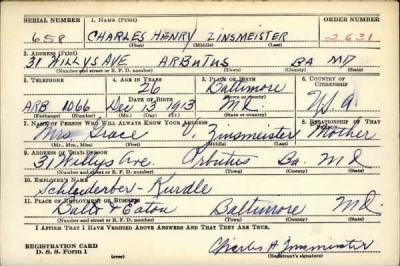 SERIAL NUMBER 1. NAME (Print) ORDER NUMBER
658 CHARLES HENRY ZINSMEISTER 2631
(First) (Middle) (Last)
2. ADDRESS (Print)
31 WILLYS AVE ARBUTUS BA MD
(Number and street or R. F. D. number) (Town) (County) (State)
3. TELEPHONE 4. AGE IN YEARS 5. PLACE OF BIRTH 6. COUNTRY OF CITIZENSHIP
26 Baltimore
(Town or county)
DATE OF BIRTH
ARB 1066 Dec 13 1913 Md. U.S.A
(Exchange) (Number) (Mo.) (Day) (Yr.) (State or country)
7. NAME OF PERSON WHO WILL ALWAYS KNOW YOUR ADDRESS 8. RELATIONSHIP OF THAT PERSON
Mrs Grace V. Zinsmeister Mother
(Mr., Mrs., Miss) (First) (Middle) (Last)
9. ADDRESS OF THAT PERSON
31 Willys Ave. Arbutus Ba. Md
(Number and street or R. F. D. number) (Town) (County) (State)
10. EMPLOYER'S NAME
Schluderber-Kurdle
11. PLACE OF EMPLOYMENT OR BUSINESS
Balto & Eaton Baltimore Md.
(Number and street or R. F. D. number) (Town) (County) (State)
I AFFIRM THAT I HAVE VERIFIED ABOVE ANSWERS AND THAT THEY ARE TRUE.
REGISTRATION CARD
D. S. S. Form 1 Charles H Zinsmeister
(Registrant's signature)